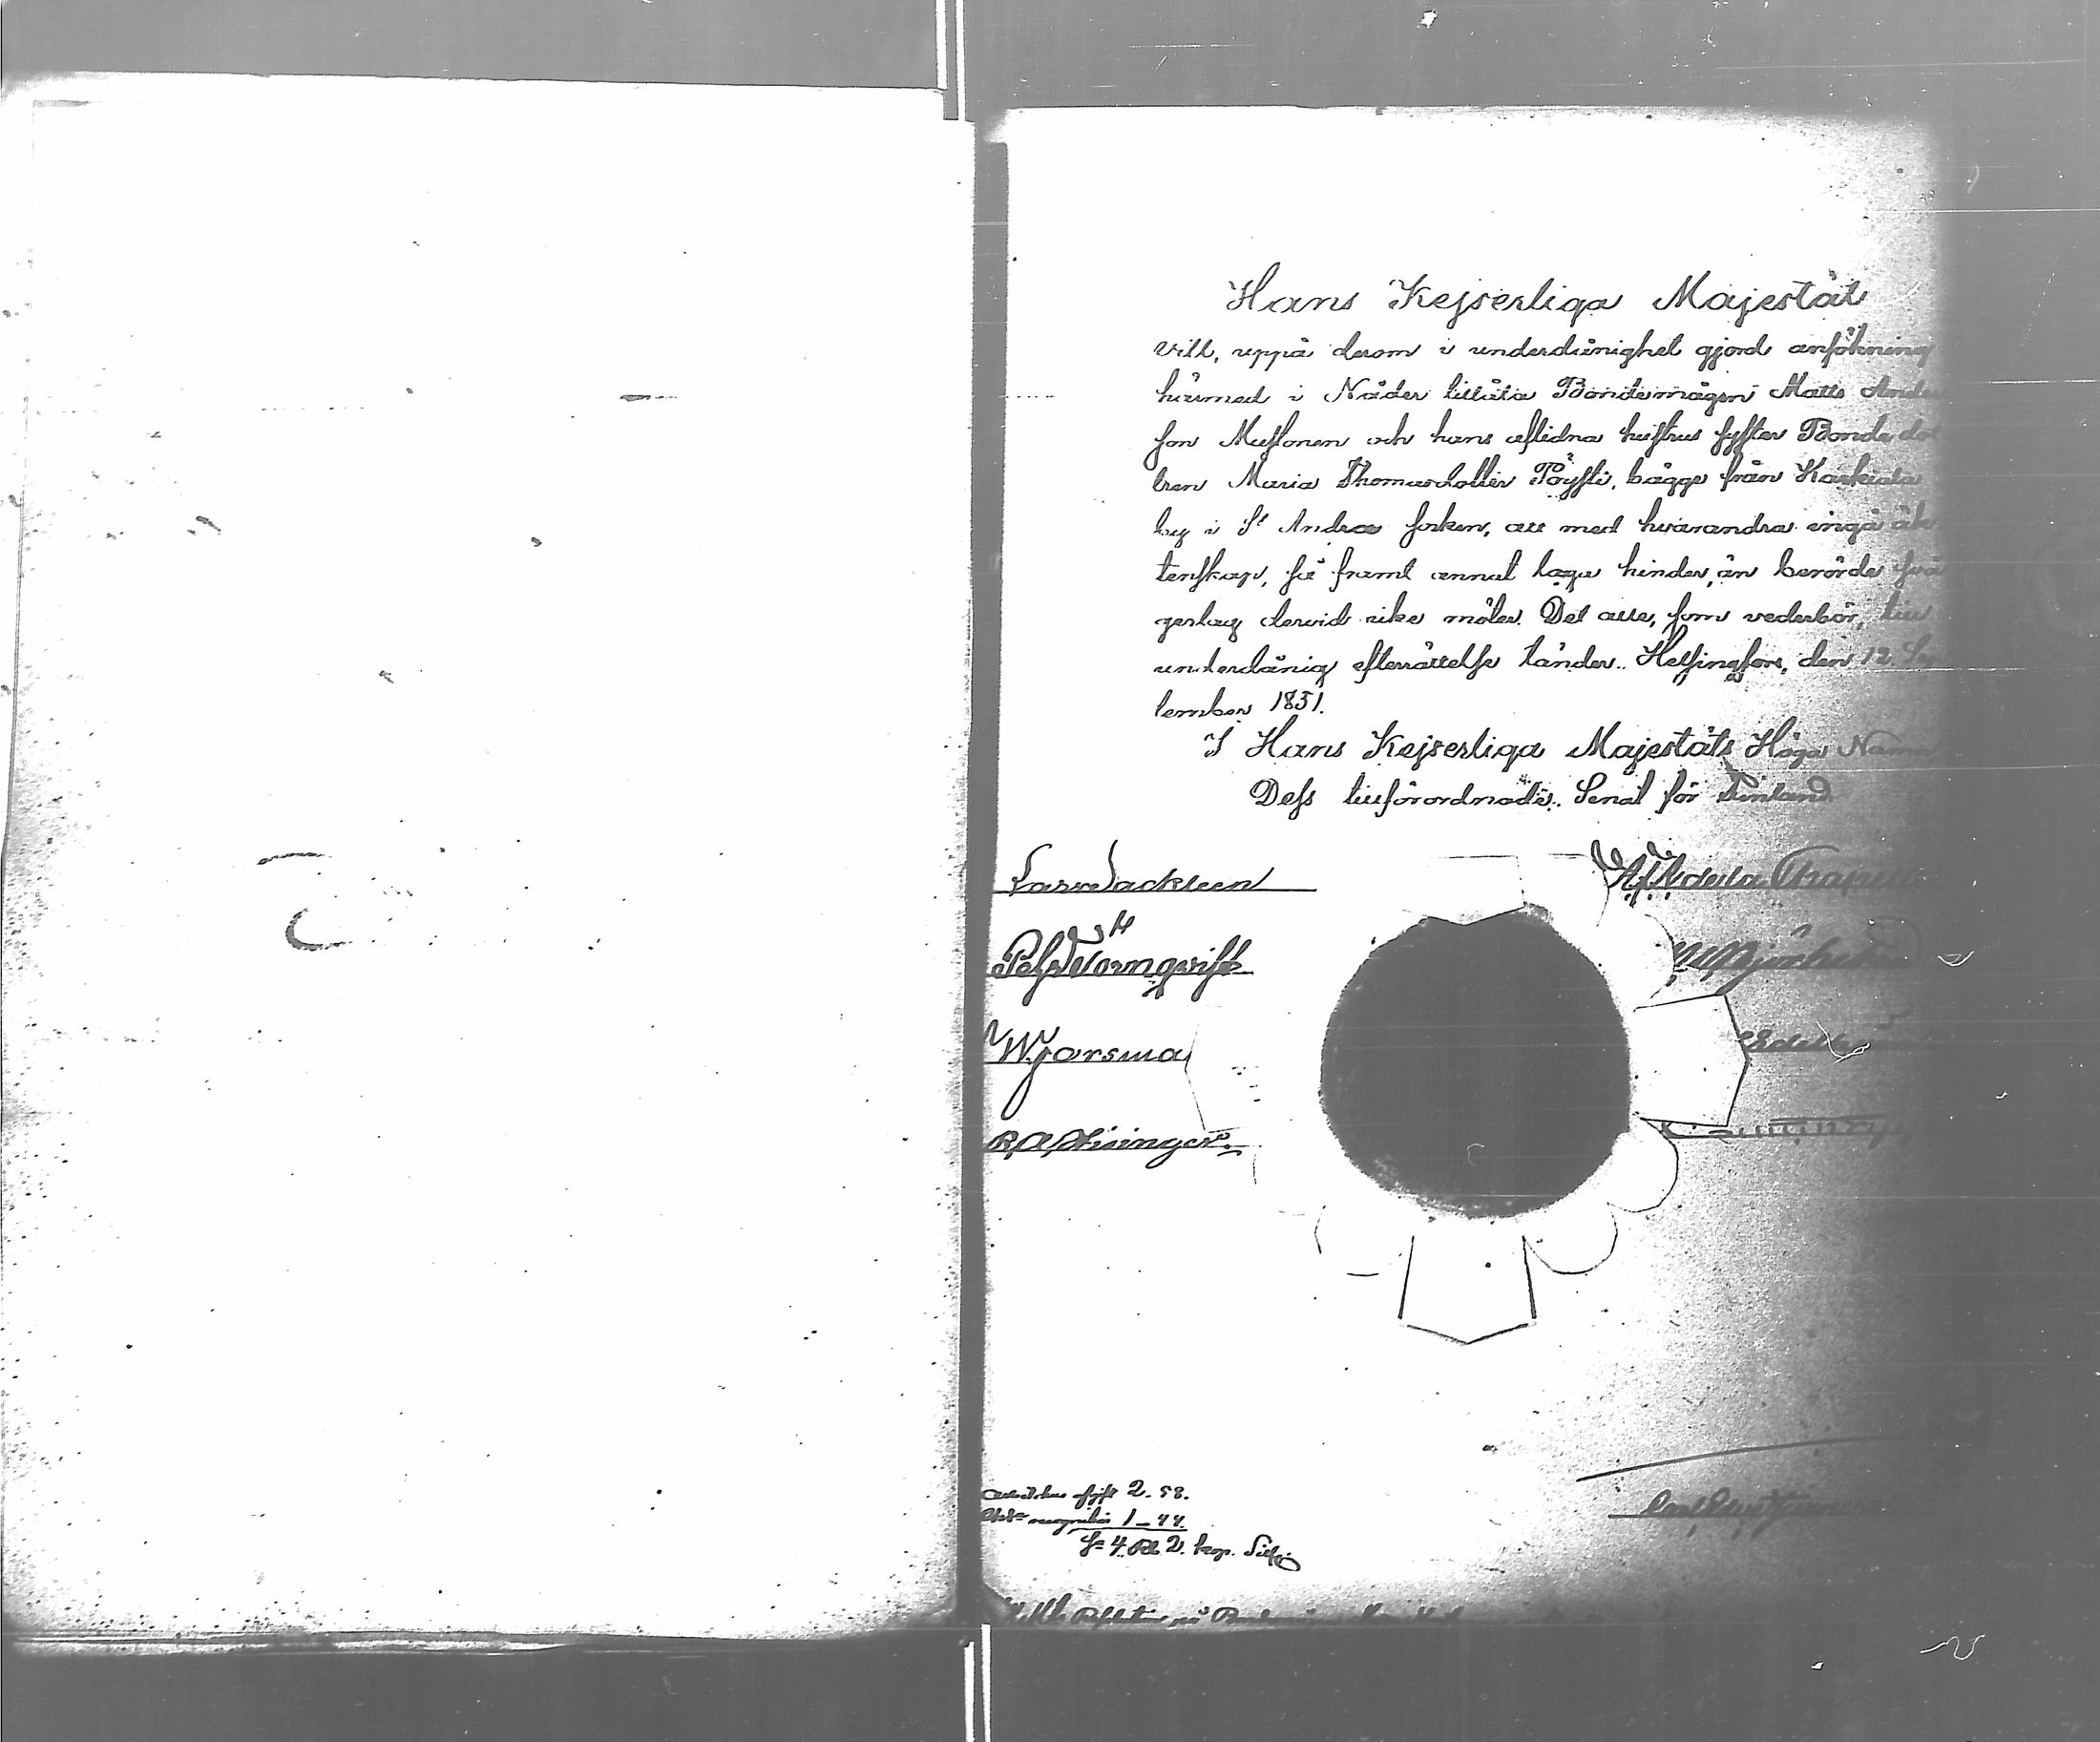 Hans Kejserliga Majestät
vill, uppå derom i underdånighet gjord ansökning
härmed i Nåder tillåta Bondemågen Matts Anders
son Mustonen och hans aflidna hustrus syster Bondedot
tren Maria Thomasdotter Pöysti, bägge från Kaskiala
by i St Andræ socken, att med hvarandra ingå äk
tenskap, så framt annat laga hinder, än berörde svå
gerlag dervid icke möter. Det alle, som vederbör, till
underdånig efterrättelse länder. Helsingfors, den 12 Sep
tember 1851.
I Hans Kejserliga Majestäts Höga Namn
Dess tillförordnade Senat för Finland.
Lars Sackleen
Törnqvist
af
R A Hisinger
2. 58.
1 - 44.
Sa 4. Rbl 2. kop. Silfr
Resolution på